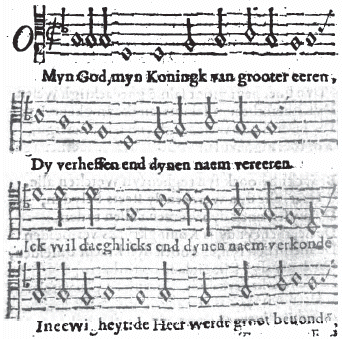 O
Myn God, myn Koningk van grooter eeren,
Dy verheffen end dynen naem vereeren
Ick wil daeghlicks end dynen naem verkonde
In eewigheyt: de Heer werdt groot